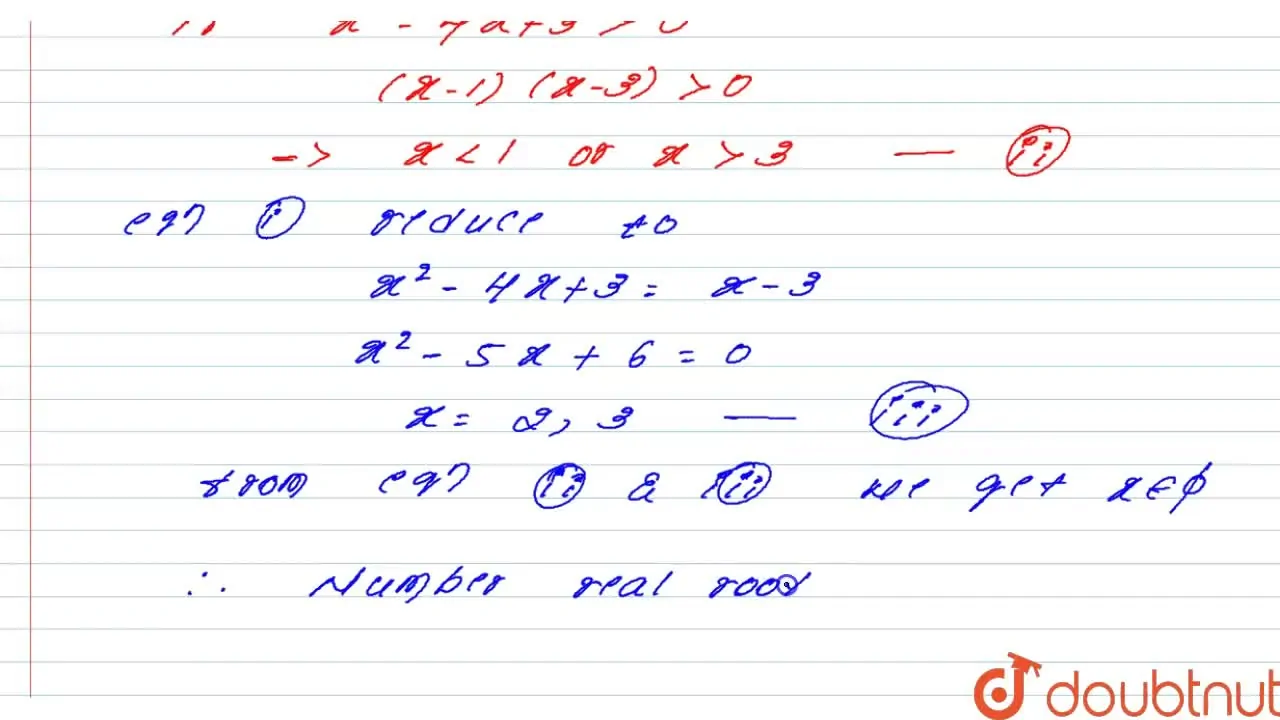 (x-1) (x-3) > 0
-> x < 1 or x > 3 — (ii)
eqn (i) reduce to
x² - 4x+3 = x-3
x² - 5x + 6 = 0
x = 2, 3 — (iii)
from eqn (ii) & (iii) we get x∈ϕ
∴ Number real root
doubtnut